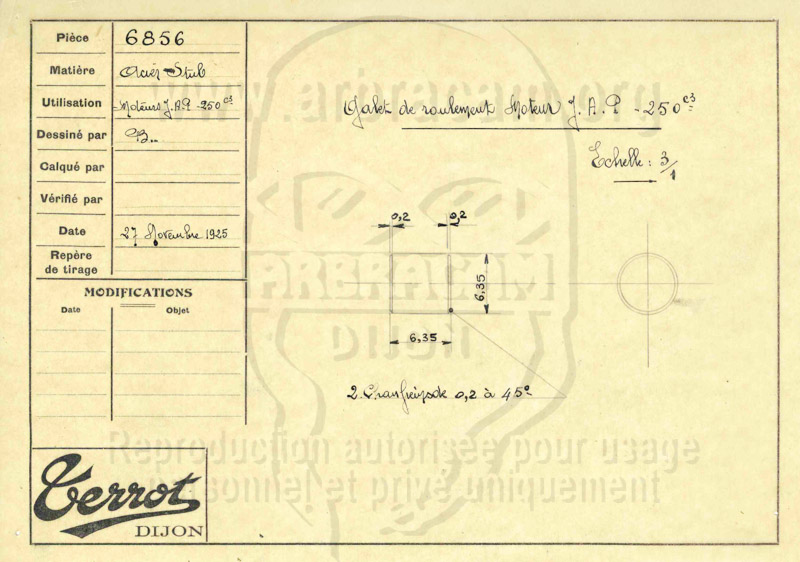 Pièce 6856
Matière Acier Stub
Utilisation Moteurs J.A.P - 250 c3
Dessiné par
Calqué par
Vérifié par
Date 27 Novembre 1925
Repère
de tirage
MODIFICATIONS
Date Objet
Terrot
DIJON
www.arbracam.org
Galet de roulement Moteur J.A.P - 250 c3
Echelle: 3/1
0,2 0,2
6,35
6,35
2 Chanfreins de 0,2 à 45°
ARBRACAM
DIJON
Reproduction autorisée pour usage
personnel et privé uniquement